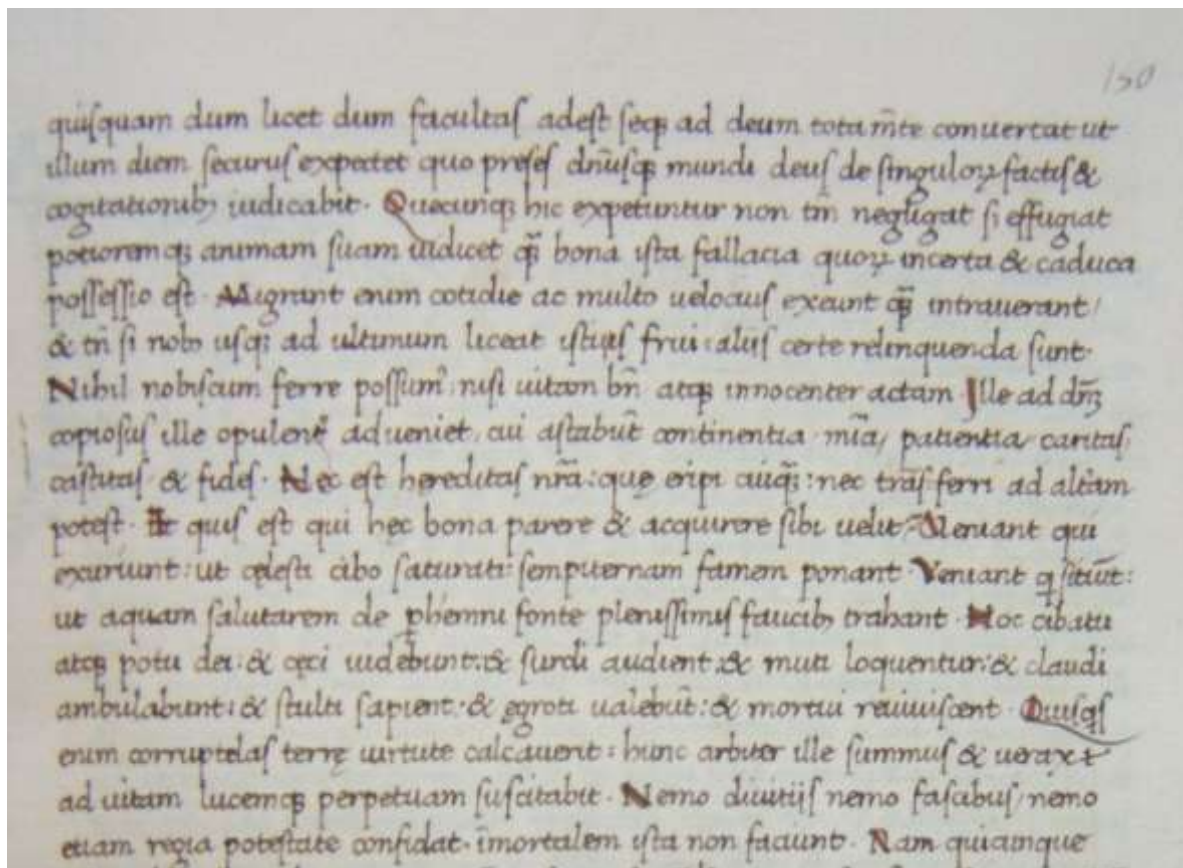 150
quiſquam dum licet dum facultaſ adeſt ſeq᷒ ad deum tota m̄te conuertat ut
illum diem ſecuruſ expectet quo preſeſ dn̄uſq᷒ mundi deuſ de ſinguloꝝ factiſ &
cogitationib᷒ iudicabit · Quecunq᷒ hic expetuntur non tm̄ negligat ſi effugiat
potioremq᷒ animam ſuam iudicet q̄ bona iſta fallacia quoꝝ incerta & caduca
poſſeſſio eſt · Migrant enim cotidie ac multo uelociuſ exeunt q̄ intrauerant /
& tn̄ ſi nob uſq᷒ ad ultimum liceat iſtiſ frui : aliiſ certe relinquenda ſunt ·
Nihil nobiſcum ferre poſſum᷒ : niſi uitam bn̄ atq᷒ innocenter actam · Ille ad dm̄
copioſuſ ille opulent᷒ adueniet , cui aſtabūt continentia · mīa / patientia / caritaſ ,
caſtitaſ & fideſ · Nec eſt hereditaſ nr̄a : quę eripi cuiq̄ : nec tranſ ferri ad altām
poteſt · Et quiſ eſt qui hec bona parere & acquirere ſibi uelit · Veniant qui
exuriunt : ut cęleſti cibo ſaturati : ſempiternam famem ponant · Veniant q ſitiūt :
ut aquam ſalutarem de phēnni fonte pleniſſimiſ faucib᷒ trahant · Hoc cibatu
atq᷒ potu dei : & cęci uidebunt : & ſurdi audient : & muti loquentur : & claudi
ambulabunt : & ſtulti ſapient : & ęgroti ualebūt : & mortui reuiuiſcent · Quiſq᷒ſ
enim corruptelaſ terrę uirtute calcauerit : hunc arbiter ille ſummuſ & uerax
ad uitam lucemq᷒ perpetuam ſuſcitabit · Nemo diuitijſ nemo faſcibuſ / nemo
etiam regia poteſtate confidat · īmortalem iſta non faciunt · Nam quicunque